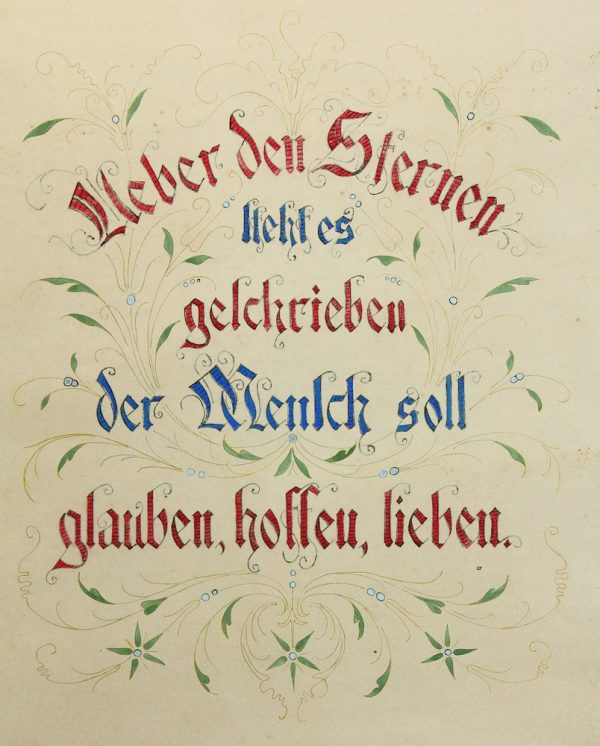 Ueber den Sternen
steht es
geschrieben
der Mensch soll
glauben, hoffen, lieben.